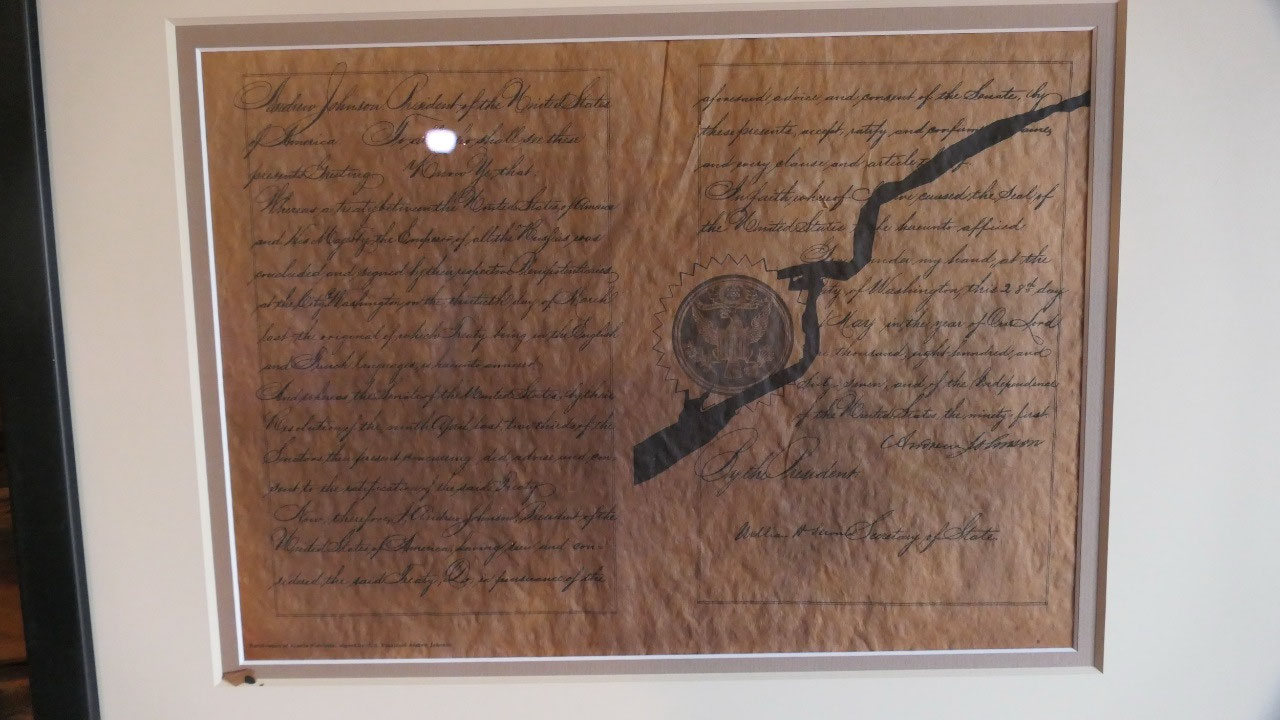 Andrew Johnson President of the United States
of America To all who shall see these
presents Greeting: Know Ye that,
Whereas a treaty between the United States of America
and His Majesty the Emperor of all the Russias was
concluded and signed by their respective Plenipotentiaries
at the City Washington, on the thirtieth day of March
last the original of which Treaty being in the English
and French languages is hereunto annexed.
And whereas the Senate of the United States, by their
Resolution of the ninth April last two thirds of the
Senators then present concurring did advise and con-
sent to the ratification of the said Treaty.
Now, therefore, I Andrew Johnson, President of the
United States of America, having seen and con-
sidered the said Treaty, Do, in pursuance of the
aforesaid, advice and consent of the Senate, by
these presents, accept, ratify, and confirm
and every clause and article
In faith whereof I have caused the Seal of
the United States to be hereunto affixed
under my hand, at the
City of Washington, this 28th day
May in the year of Our Lord
thousand eight hundred, and
Sixty-seven, and of the Independence
of the United States the ninety-first
Andrew Johnson
By the President.
William H Seward Secretary of State